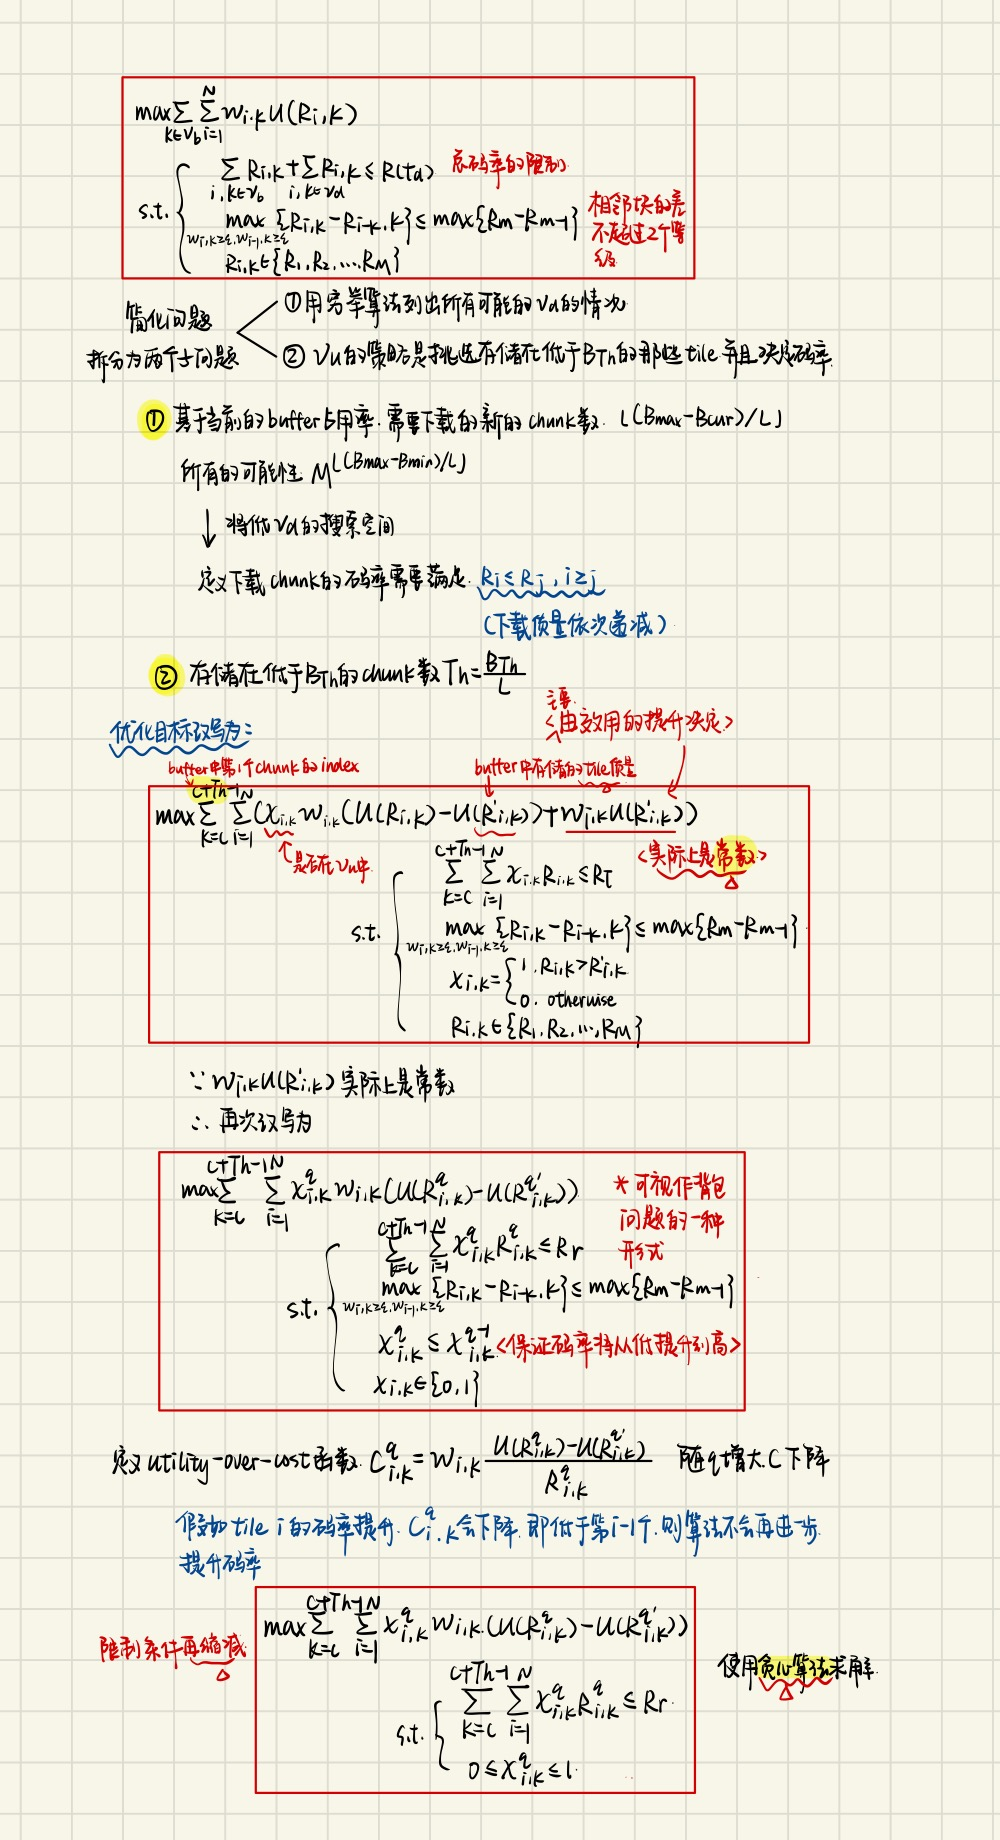 max∑_{k∈V_b}∑_{i=1}^{N} w_{i,k}U(R_{i,k})
s.t.
∑_{i,k∈V_b} R_{i,k}+∑_{i,k∈V_d} R_{i,k} ≤ R(t_d) 总码率的限制
max_{w_{i,k}≥ξ,w_{i-1,k}≥ξ} {R_{i,k}-R_{i-1,k}} ≤ max{R_m-R_{m-1}} 相邻块的差
不超过2个等
级
R_{i,k}∈{R_1,R_2,...,R_M}
简化问题
拆分为两个子问题
①用穷举算法列出所有可能的V_d的情况
② V_u的策略是挑选存储在低于B_{Th}的那些tile 并且决定码率
① 基于当前的buffer占用率,需要下载的新的chunk数. ⌊(Bmax-Bcur)/L⌋
所有的可能性 M^{⌊(Bmax-Bmin)/L⌋}
↓ 降低V_d的搜索空间
定义下载chunk的码率需要满足. R_i≤R_j, i≥j
(下载质量依次递减)
② 存储在低于B_{Th}的chunk数 T_h=B_{Th}/L
主要
<由效用的提升决定>
优化目标改写为:
buffer中第1个chunk的index
buffer中存储的tile质量
max∑_{k=c}^{c+Th-1}∑_{i=1}^{N}(x_{i,k}w_{i,k}(U(R_{i,k})-U(R'_{i,k}))+w_{i,k}U(R'_{i,k}))
↑是否在V_u中
<实际上是常数>
s.t.
∑_{k=c}^{c+Th-1}∑_{i=1}^{N} x_{i,k}R_{i,k}≤R_r
max_{w_{i,k}≥ξ,w_{i-1,k}≥ξ} {R_{i,k}-R_{i-1,k}} ≤ max{R_m-R_{m-1}}
x_{i,k}={1, R_{i,k}>R'_{i,k}
0, otherwise
R_{i,k}∈{R_1,R_2,...,R_M}
∵ w_{i,k}U(R'_{i,k})实际上是常数
∴ 再次改写为
max∑_{k=c}^{c+Th-1}∑_{i=1}^{N} x^q_{i,k}w_{i,k}(U(R^q_{i,k})-U(R^{q'}_{i,k}))
* 可视作背包
问题的一种
形式
s.t.
∑_{k=c}^{c+Th-1}∑_{i=1}^{N} x^q_{i,k}R^q_{i,k}≤R_r
max_{w_{i,k}≥ξ,w_{i-1,k}≥ξ} {R_{i,k}-R_{i-1,k}} ≤ max{R_m-R_{m-1}}
x^q_{i,k}≤x^{q-1}_{i,k} <保证码率将从低提升到高>
x_{i,k}∈{0,1}
定义utility-over-cost函数. C^q_{i,k}=w_{i,k} (U(R^q_{i,k})-U(R^{q'}_{i,k}))/R^q_{i,k} 随q增大,C下降
假如tile i的码率提升. C^q_{i,k}会下降,即低于第i-1个,则算法不会再进一步
提升码率
max∑_{k=c}^{c+Th-1}∑_{i=1}^{N} x^q_{i,k}w_{i,k}(U(R^q_{i,k})-U(R^{q'}_{i,k}))
限制条件再缩减
使用贪心算法求解.
s.t.
∑_{k=c}^{c+Th-1}∑_{i=1}^{N} x^q_{i,k}R^q_{i,k}≤R_r.
0≤x^q_{i,k}≤1.